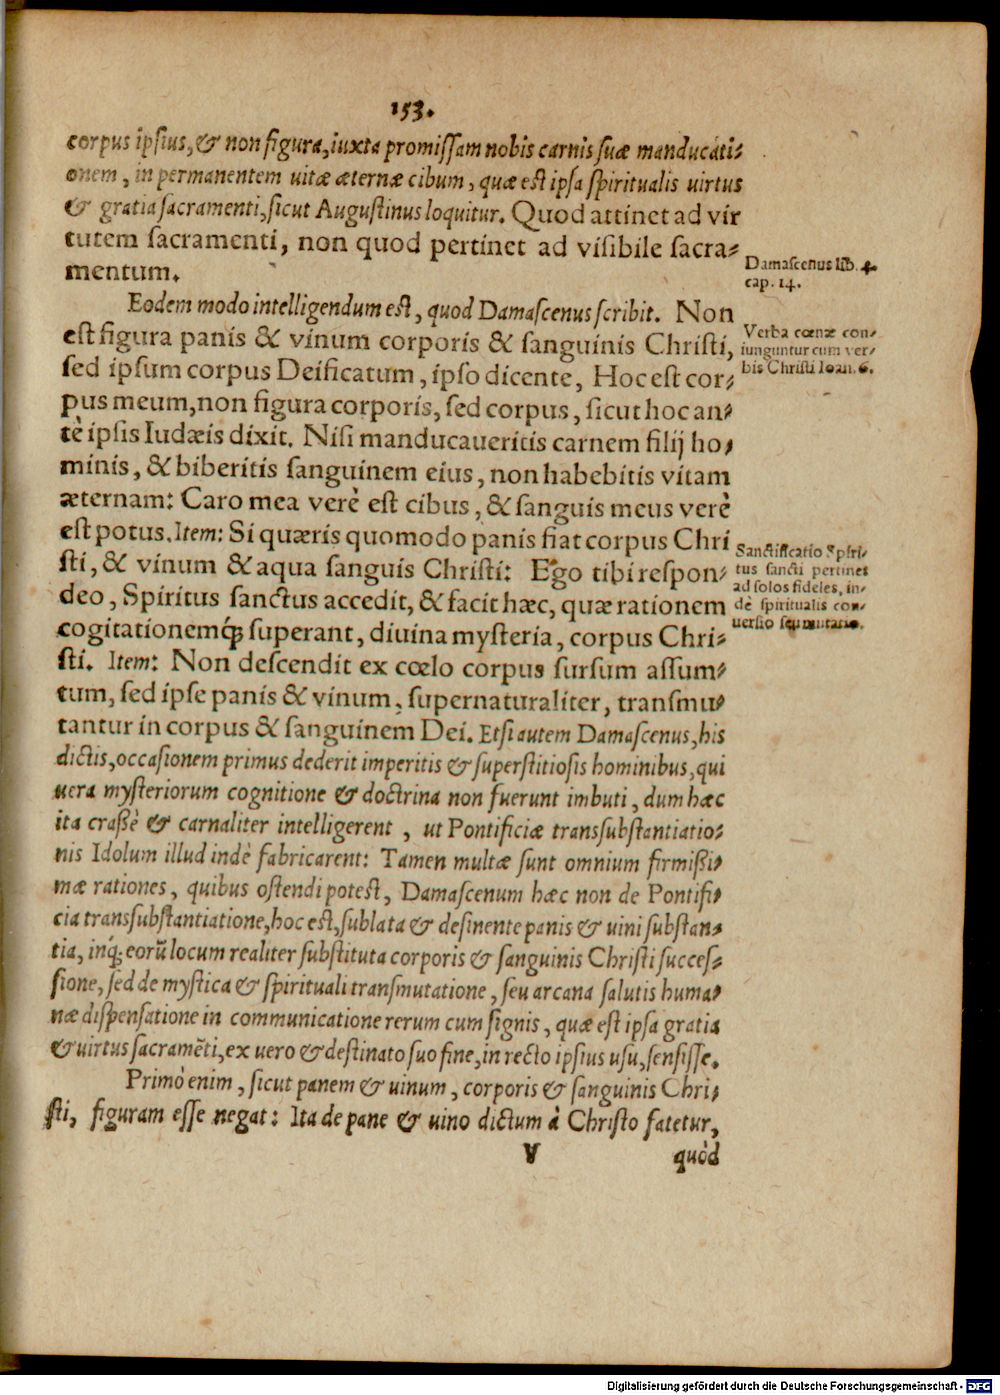 153.
corpus ipsius, & non figura, iuxta promissam nobis carnis suæ manducati-
onem, in permanentem uitæ æternæ cibum, quæ est ipsa spiritualis uirtus
& gratia sacramenti, sicut Augustinus loquitur. Quod attinet ad vir
tutem sacramenti, non quod pertinet ad visibile sacra-
mentum.
Damascenus lib. 4.
cap. 14.
Eodem modo intelligendum est, quod Damascenus scribit. Non
est figura panis & vinum corporis & sanguinis Christi,
sed ipsum corpus Deificatum, ipso dicente, Hoc est cor-
pus meum, non figura corporis, sed corpus, sicut hoc an-
tè ipsis Iudæis dixit. Nisi manducaueritis carnem filij ho-
minis, & biberitis sanguinem eius, non habebitis vitam
æternam: Caro mea verè est cibus, & sanguis meus verè
est potus. Item: Si quæris quomodo panis fiat corpus Chri
sti, & vinum & aqua sanguis Christi: Ego tibi respon-
deo, Spiritus sanctus accedit, & facit hæc, quæ rationem
cogitationemq́; superant, diuina mysteria, corpus Chri-
sti. Item: Non descendit ex cœlo corpus sursum assum-
tum, sed ipse panis & vinum, supernaturaliter, transmu-
tantur in corpus & sanguinem Dei. Etsi autem Damascenus, his
dictis, occasionem primus dederit imperitis & superstitiosis hominibus, qui
uera mysteriorum cognitione & doctrina non fuerunt imbuti, dum hæc
ita craßè & carnaliter intelligerent, ut Pontificiæ transsubstantiatio-
nis Idolum illud indè fabricarent: Tamen multæ sunt omnium firmißi-
mæ rationes, quibus ostendi potest, Damascenum hæc non de Pontifi-
cia transsubstantiatione, hoc est, sublata & desinente panis & uini substan-
tia, inq́; eorũ locum realiter substituta corporis & sanguinis Christi succes-
sione, sed de mystica & spirituali transmutatione, seu arcana salutis huma-
næ dispensatione in communicatione rerum cum signis, quæ est ipsa gratia
& uirtus sacramẽti, ex uero & destinato suo fine, in recto ipsius usu, sensisse.
Verba cœnæ con-
iunguntur cum ver-
bis Christi Ioan. 6.
Sanctificatio Spiri-
tus sancti pertinet
ad solos fideles, in-
dè spiritualis con-
uersio seu mutatio.
Primò enim, sicut panem & uinum, corporis & sanguinis Chri-
sti, figuram esse negat: Ita de pane & uino dictum à Christo fatetur,
V
quòd
Digitalisierung gefördert durch die Deutsche Forschungsgemeinschaft - DFG